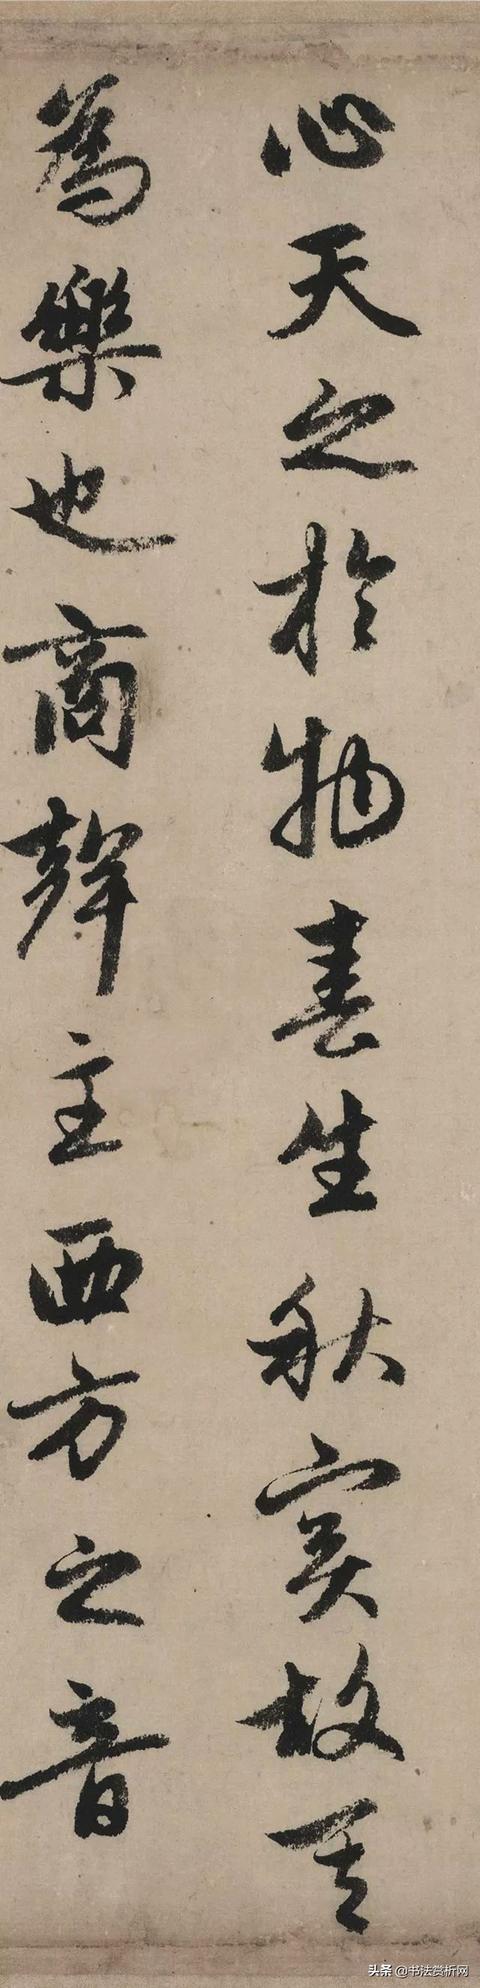 心天之於物春生秋實故其
為樂也商聲主西方之音
头条 @书法赏析网